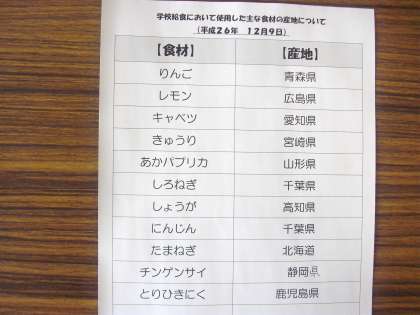 学校給食において使用した主な食材の産地について
（平成２６年　１２月９日）
【食材】 【産地】
りんご 青森県
レモン 広島県
キャベツ 愛知県
きゅうり 宮崎県
あかパプリカ 山形県
しろねぎ 千葉県
しょうが 高知県
にんじん 千葉県
たまねぎ 北海道
チンゲンサイ 静岡県
とりひきにく 鹿児島県